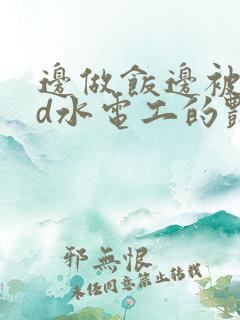 邊做飯邊被
d水電工的
邪無恨
未经同意禁止转载